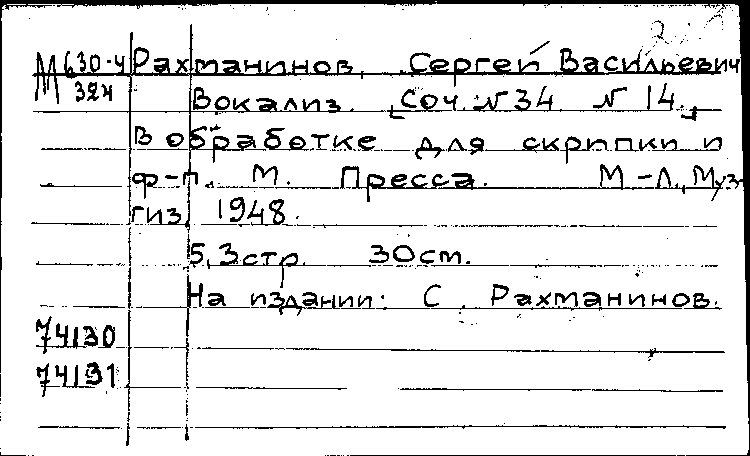 М 630-4 Рахманинов, Сергей Васильевич
324 Вокализ. [Соч. № 34 № 14.]
В обработке для скрипки и
ф-п. М. Пресса. М-Л., Муз-
гиз, 1948.
5,3 стр. 30 см.
На издании: С. Рахманинов.
74130
74131